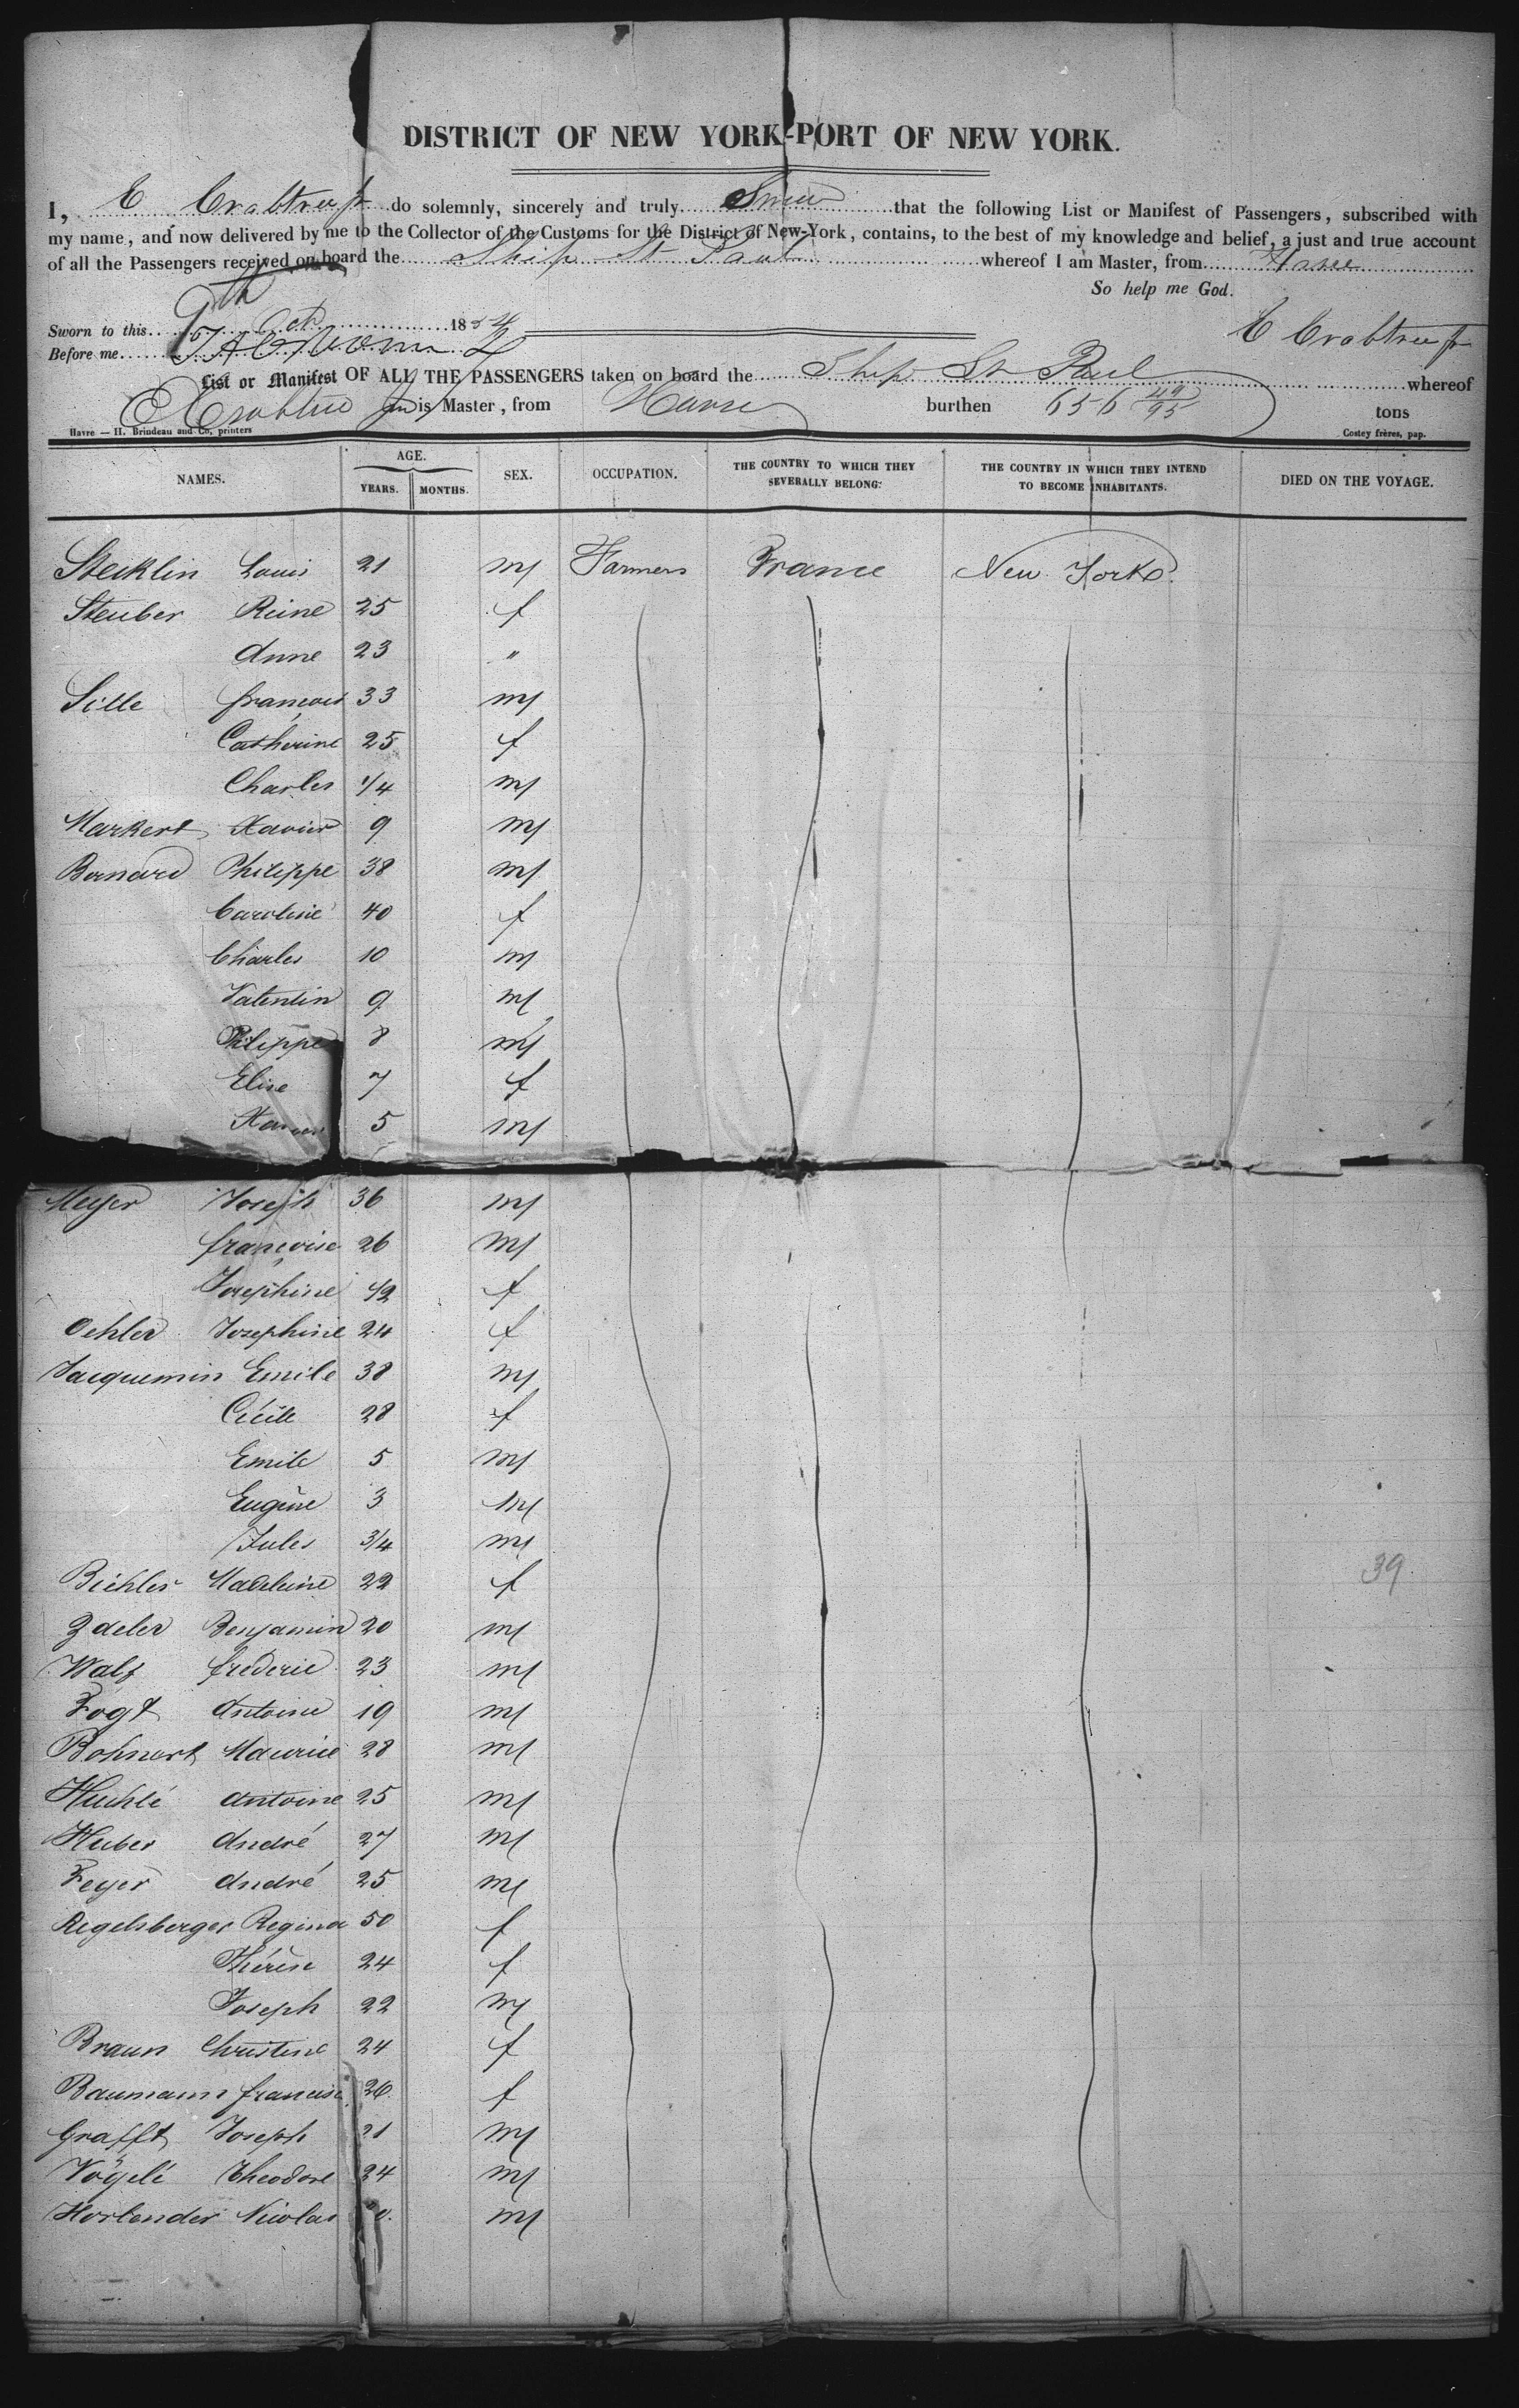 DISTRICT OF NEW YORK-PORT OF NEW YORK.
I, E Crabtree jr do solemnly, sincerely and truly Swear that the following List or Manifest of Passengers, subscribed with
my name, and now delivered by me to the Collector of the Customs for the District of New-York, contains, to the best of my knowledge and belief, a just and true account
of all the Passengers received on board the Ship St Paul whereof I am Master, from Havre
So help me God.
Sworn to this 9th Oct 1854
E Crabtree jr
Before me
List or Manifest OF ALL THE PASSENGERS taken on board the Ship St Paul whereof
E Crabtree jr is Master, from Havre burthen 656 49/95 tons
Havre — H. Brindeau and Co, printers Costey frères, pap.
NAMES. AGE. YEARS. MONTHS. SEX. OCCUPATION. THE COUNTRY TO WHICH THEY SEVERALLY BELONG. THE COUNTRY IN WHICH THEY INTEND TO BECOME INHABITANTS. DIED ON THE VOYAGE.
Stecklin Louis 21 m Farmers France New York
Steuber Reine 25 f
Anne 23 "
Sille françois 33 m
Catherine 25 f
Charles 1/4 m
Markert Xavier 9 m
Bernard Philippe 38 m
Caroline 40 f
Charles 10 m
Valentin 9 m
Philippe 8 m
Elise 7 f
Xavier 5 m
Meyer Joseph 36 m
françoise 26 m
Josephine 1/2 f
Oehler Josephine 24 f
Jacquemin Emile 38 m
Cécile 28 f
Emile 5 m
Eugène 3 m
Jules 3/4 m
Biehler Madeleine 22 f
39
Zdeler Benjamin 20 m
Walf frederic 23 m
Vogt Antoine 19 m
Bohnert Maurice 28 m
Huchlé Antoine 25 m
Huber André 27 m
Feyer André 25 m
Regelsberger Regina 50 f
Thérèse 24 f
Joseph 22 m
Braun Christine 24 f
Baumann francisc 26 f
Grafft Joseph 21 m
Vögelé Theodore 24 m
Horlender Nicolas m